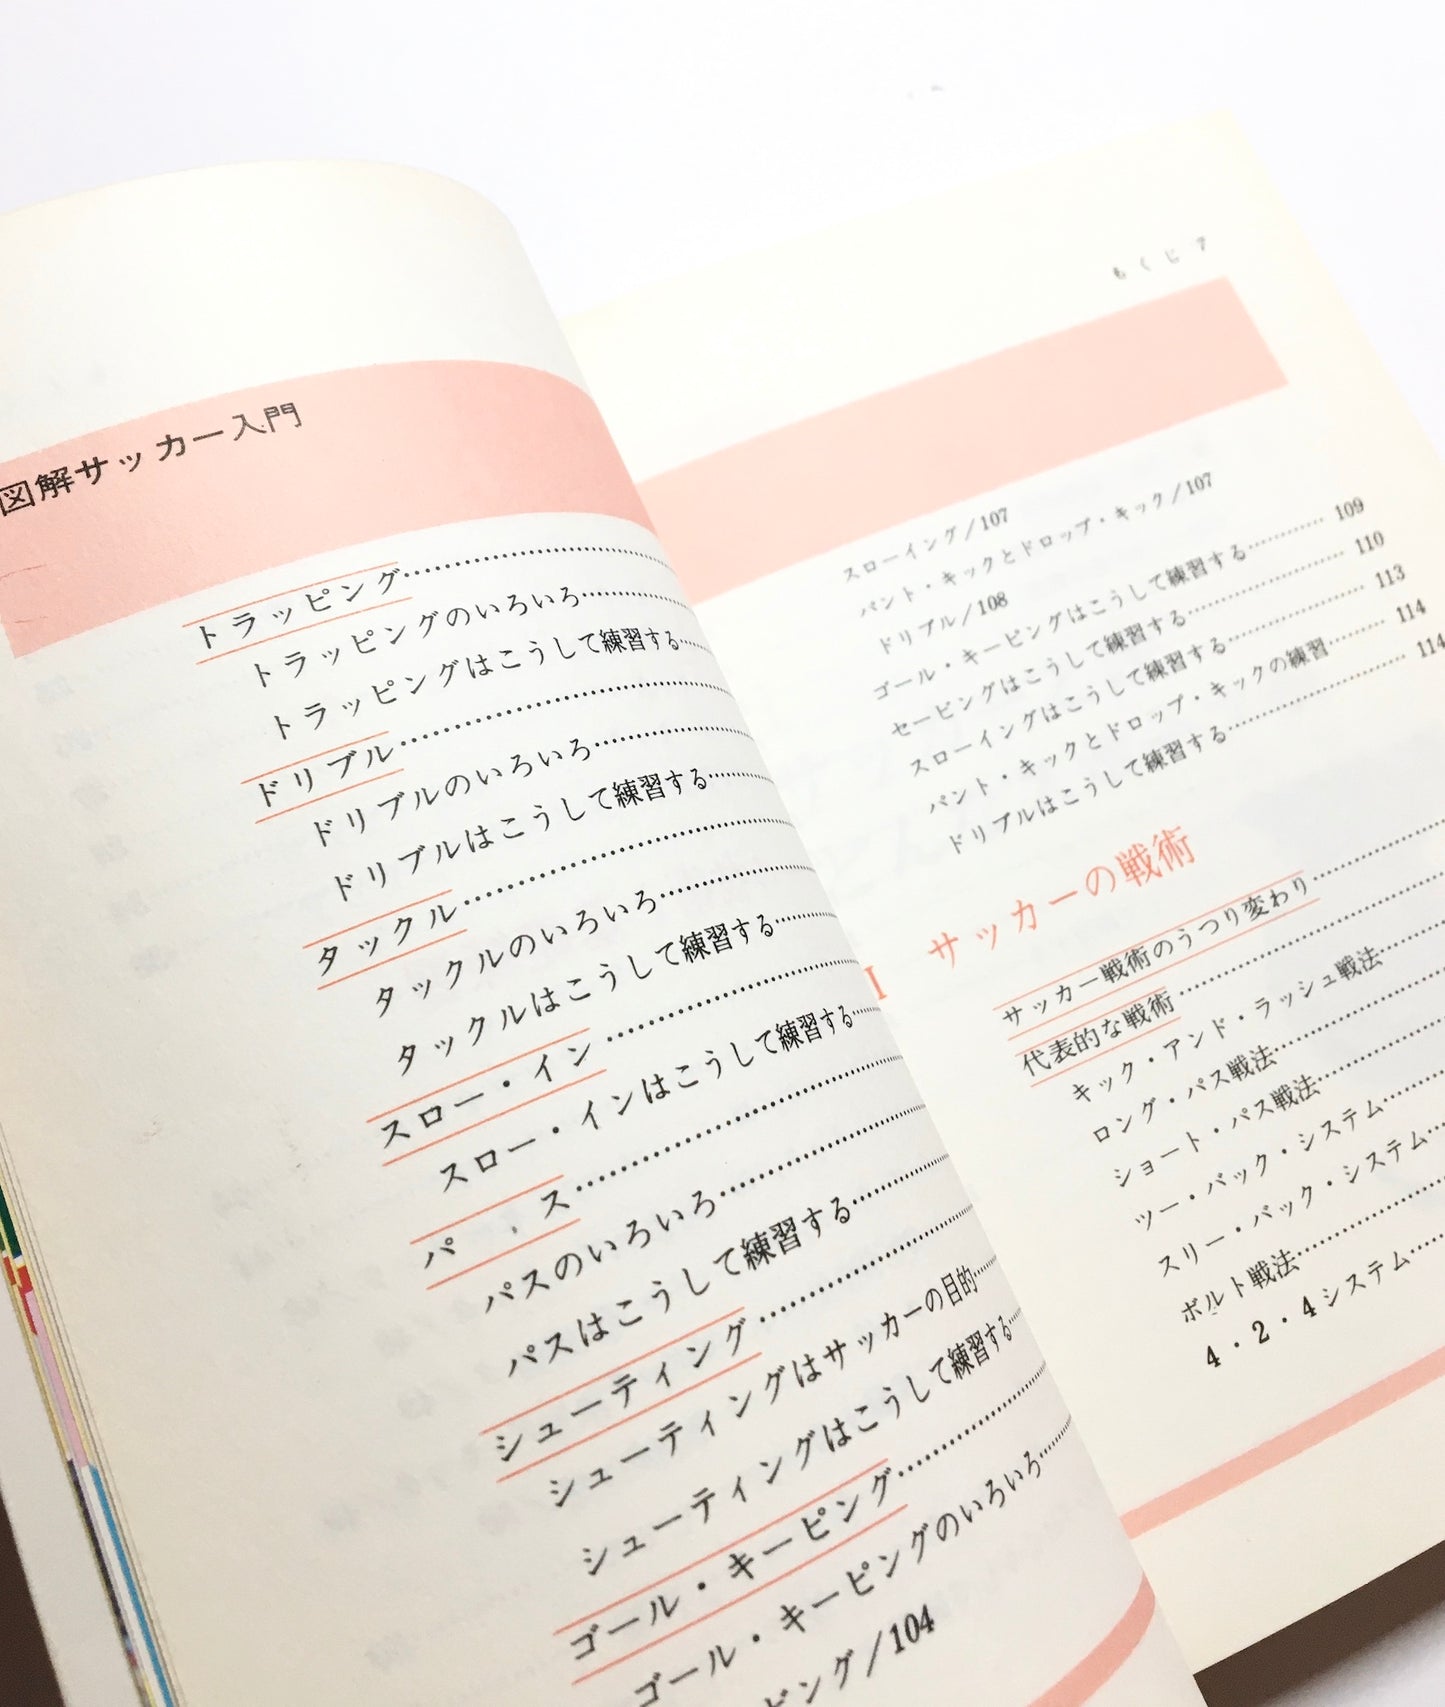 図解サッカー入門
トラッピング
トラッピングのいろいろ
トラッピングはこうして練習する
ドリブル
ドリブルのいろいろ
ドリブルはこうして練習する
タックル
タックルのいろいろ
タックルはこうして練習する
スロー・イン
スロー・インはこうして練習する
パス
パスのいろいろ
パスはこうして練習する
シューティング
シューティングはサッカーの目的
シューティングはこうして練習する
ゴール・キーピング
ゴール・キーピングのいろいろ
ピング/104
もくじ 7
スローイング/107
パント・キックとドロップ・キック/107
ドリブル/108
ゴール・キーピングはこうして練習する 109
セービングはこうして練習する 110
スローイングはこうして練習する 113
パント・キックとドロップ・キックの練習 114
ドリブルはこうして練習する 114
サッカーの戦術
サッカー戦術のうつり変わり
代表的な戦術
キック・アンド・ラッシュ戦法
ロング・パス戦法
ショート・パス戦法
ツー・バック・システム
スリー・バック・システム
ボルト戦法
4・2・4システム